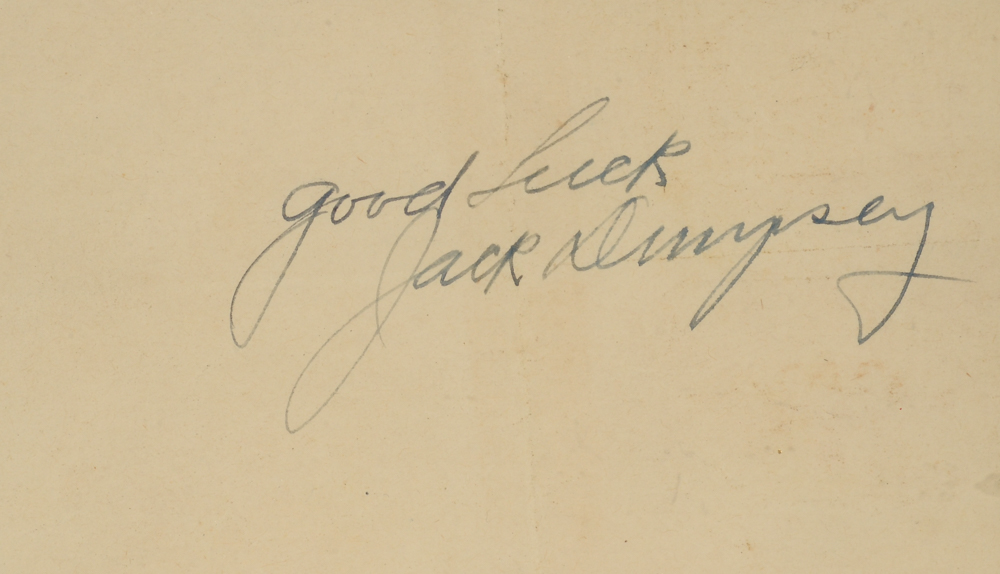 good luck
Jack Dempsey